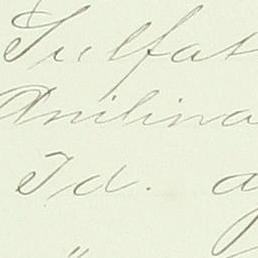 Sulfat
Anilina
Id. a
"